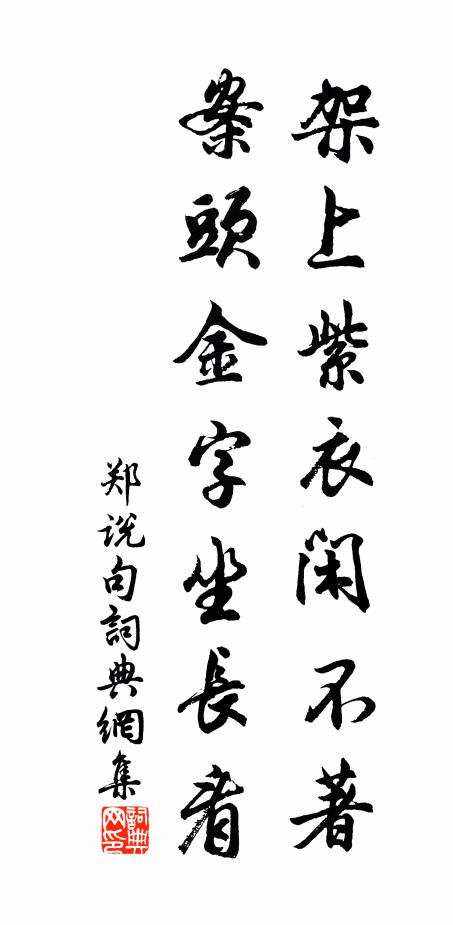 架上紫衣閑不著
案頭金字坐長看
郑说句詞典網集
詞典网印